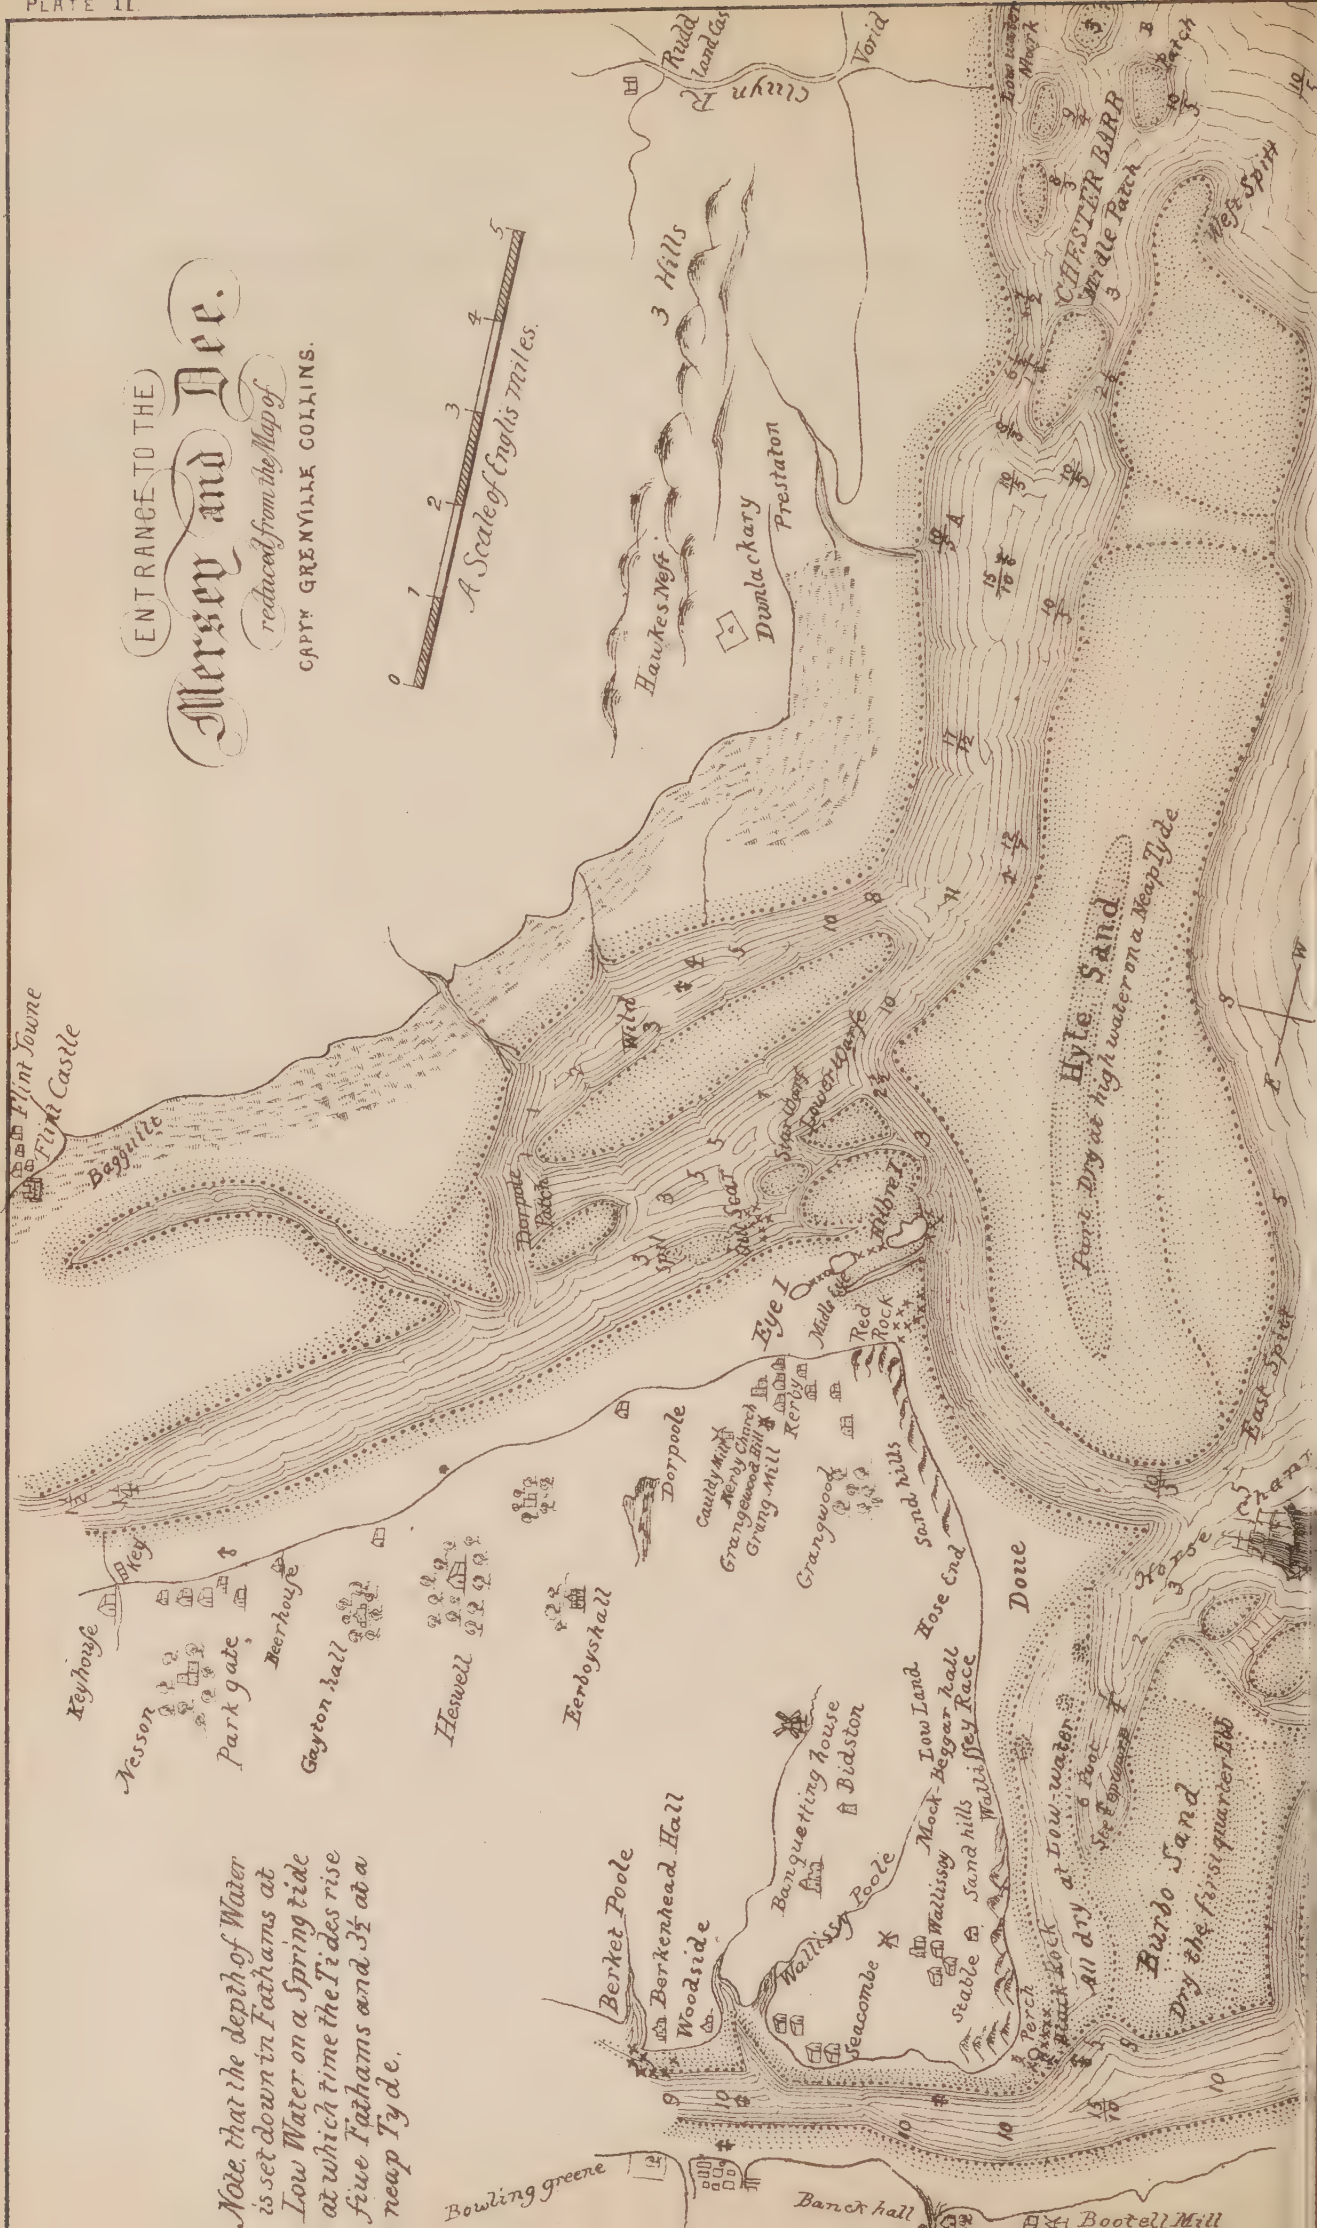 PLATE II.
ENTRANCE TO THE
Mersey and Dee.
reduced from the Map of
CAPTN GRENVILLE COLLINS.
0 1 2 3 4 5
A Scale of Englis miles.
Note, that the depth of Water
is set down in Fathams at
Low Water on a Spring tide
at which time the Tides rise
fiue Fathams and 3½ at a
neap Tyde.
Flint Towne
Flint Castle
Bagguilt
Rudd
land Cas
R Cluyn
Vorid
3 Hills
Hawkes Nest
Dumlackary
Prestaton
Low water
Mark
B
Patch
CHESTER BARR
Middle Patch
West Spitt
Wild
Dorpole
Patch
Spil
Lower Warfe
Hilbre I
Midle Eye
Eye I
Red
Rock
Hyle Sand
Part Dry at high water on a Neap Tyde
East Spitt
S
E
W
Keyhouse
Key
Nesson
Parkgate
Beerhouse
Gayton hall
Heswell
Eerboyshall
Dorpoole
Cauldy Mill
Kerby Church
Grangewood Hill
Grang Mill
Kerby
Grangwood
Sand hills
Hose End
Doue
Berket Poole
Berkenhead Hall
Woodside
Banquetting house
Bidston
Wallissy Poole
Seacombe
Low Land
Mock-Beggar hall
Wallissey Race
Wallissoy
Sand hills
Stable
Perch
Black Rock
All dry at Low-water
6 Foot
Burbo Sand
Dry the first quarter Ebb
Horse
Bowling greene
Banck hall
Bootell Mill